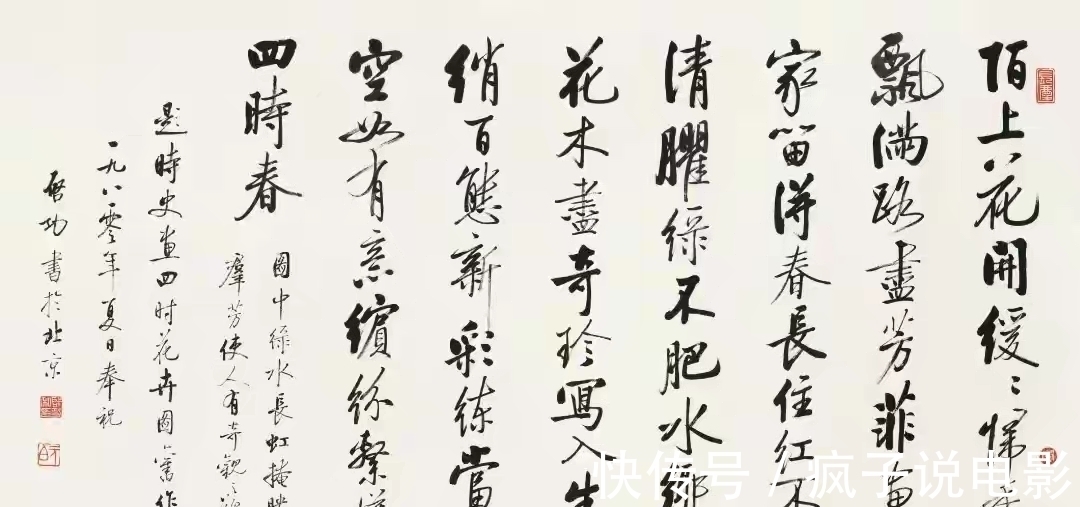 陌上花開緩〻歸
飄滿路盡芳菲畫
家留得春長住紅不
清臞綠不肥水鄉
花木盡奇珍寫入生
綃百態新彩練當
空如有意繽紛繫
四時春
圖中綠水長虹掩映
羣芳使人有奇觀之
題時史畫四時花卉圖舊作
一九八零年夏日奉祝
啓功書於北京
快传号 / 疯子说电影